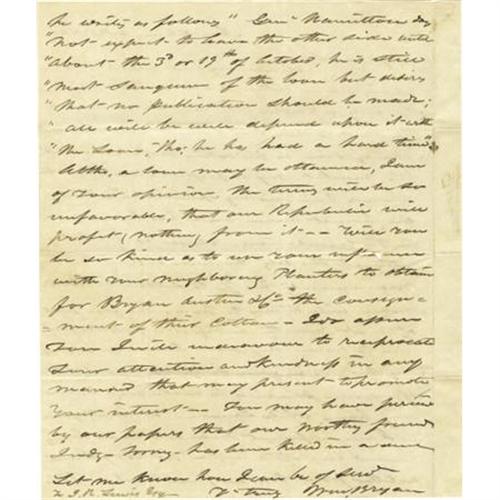 he writes as follows " Genl Hamilton does
"not expect to leave the other side until
"about the 3d or 19th of October, he is still
"most sanguine of the loan but desires
"that no publication should be made;
"all will be well depend upon it with
"the Loan, tho; he has had a hard time"
Altho, a loan may be obtained, I am
of your opinion the terms will be so
unfavorable, that our Republic will
profit, nothing from it -- Will you
be so kind as to use your influence
with your neighboring Planters to obtain
for Bryan Austin & Co the consign-
ment of their Cotton - I do assure
you I will endeavour to reciprocate
your attention and kindness in any
manner that may present to promote
your interest -- You may have
by our papers that our worthy friend
Judge has been killed in a
Let me know how I can be of
To J. R. Lewis Esq Yr truly Wm Bryan